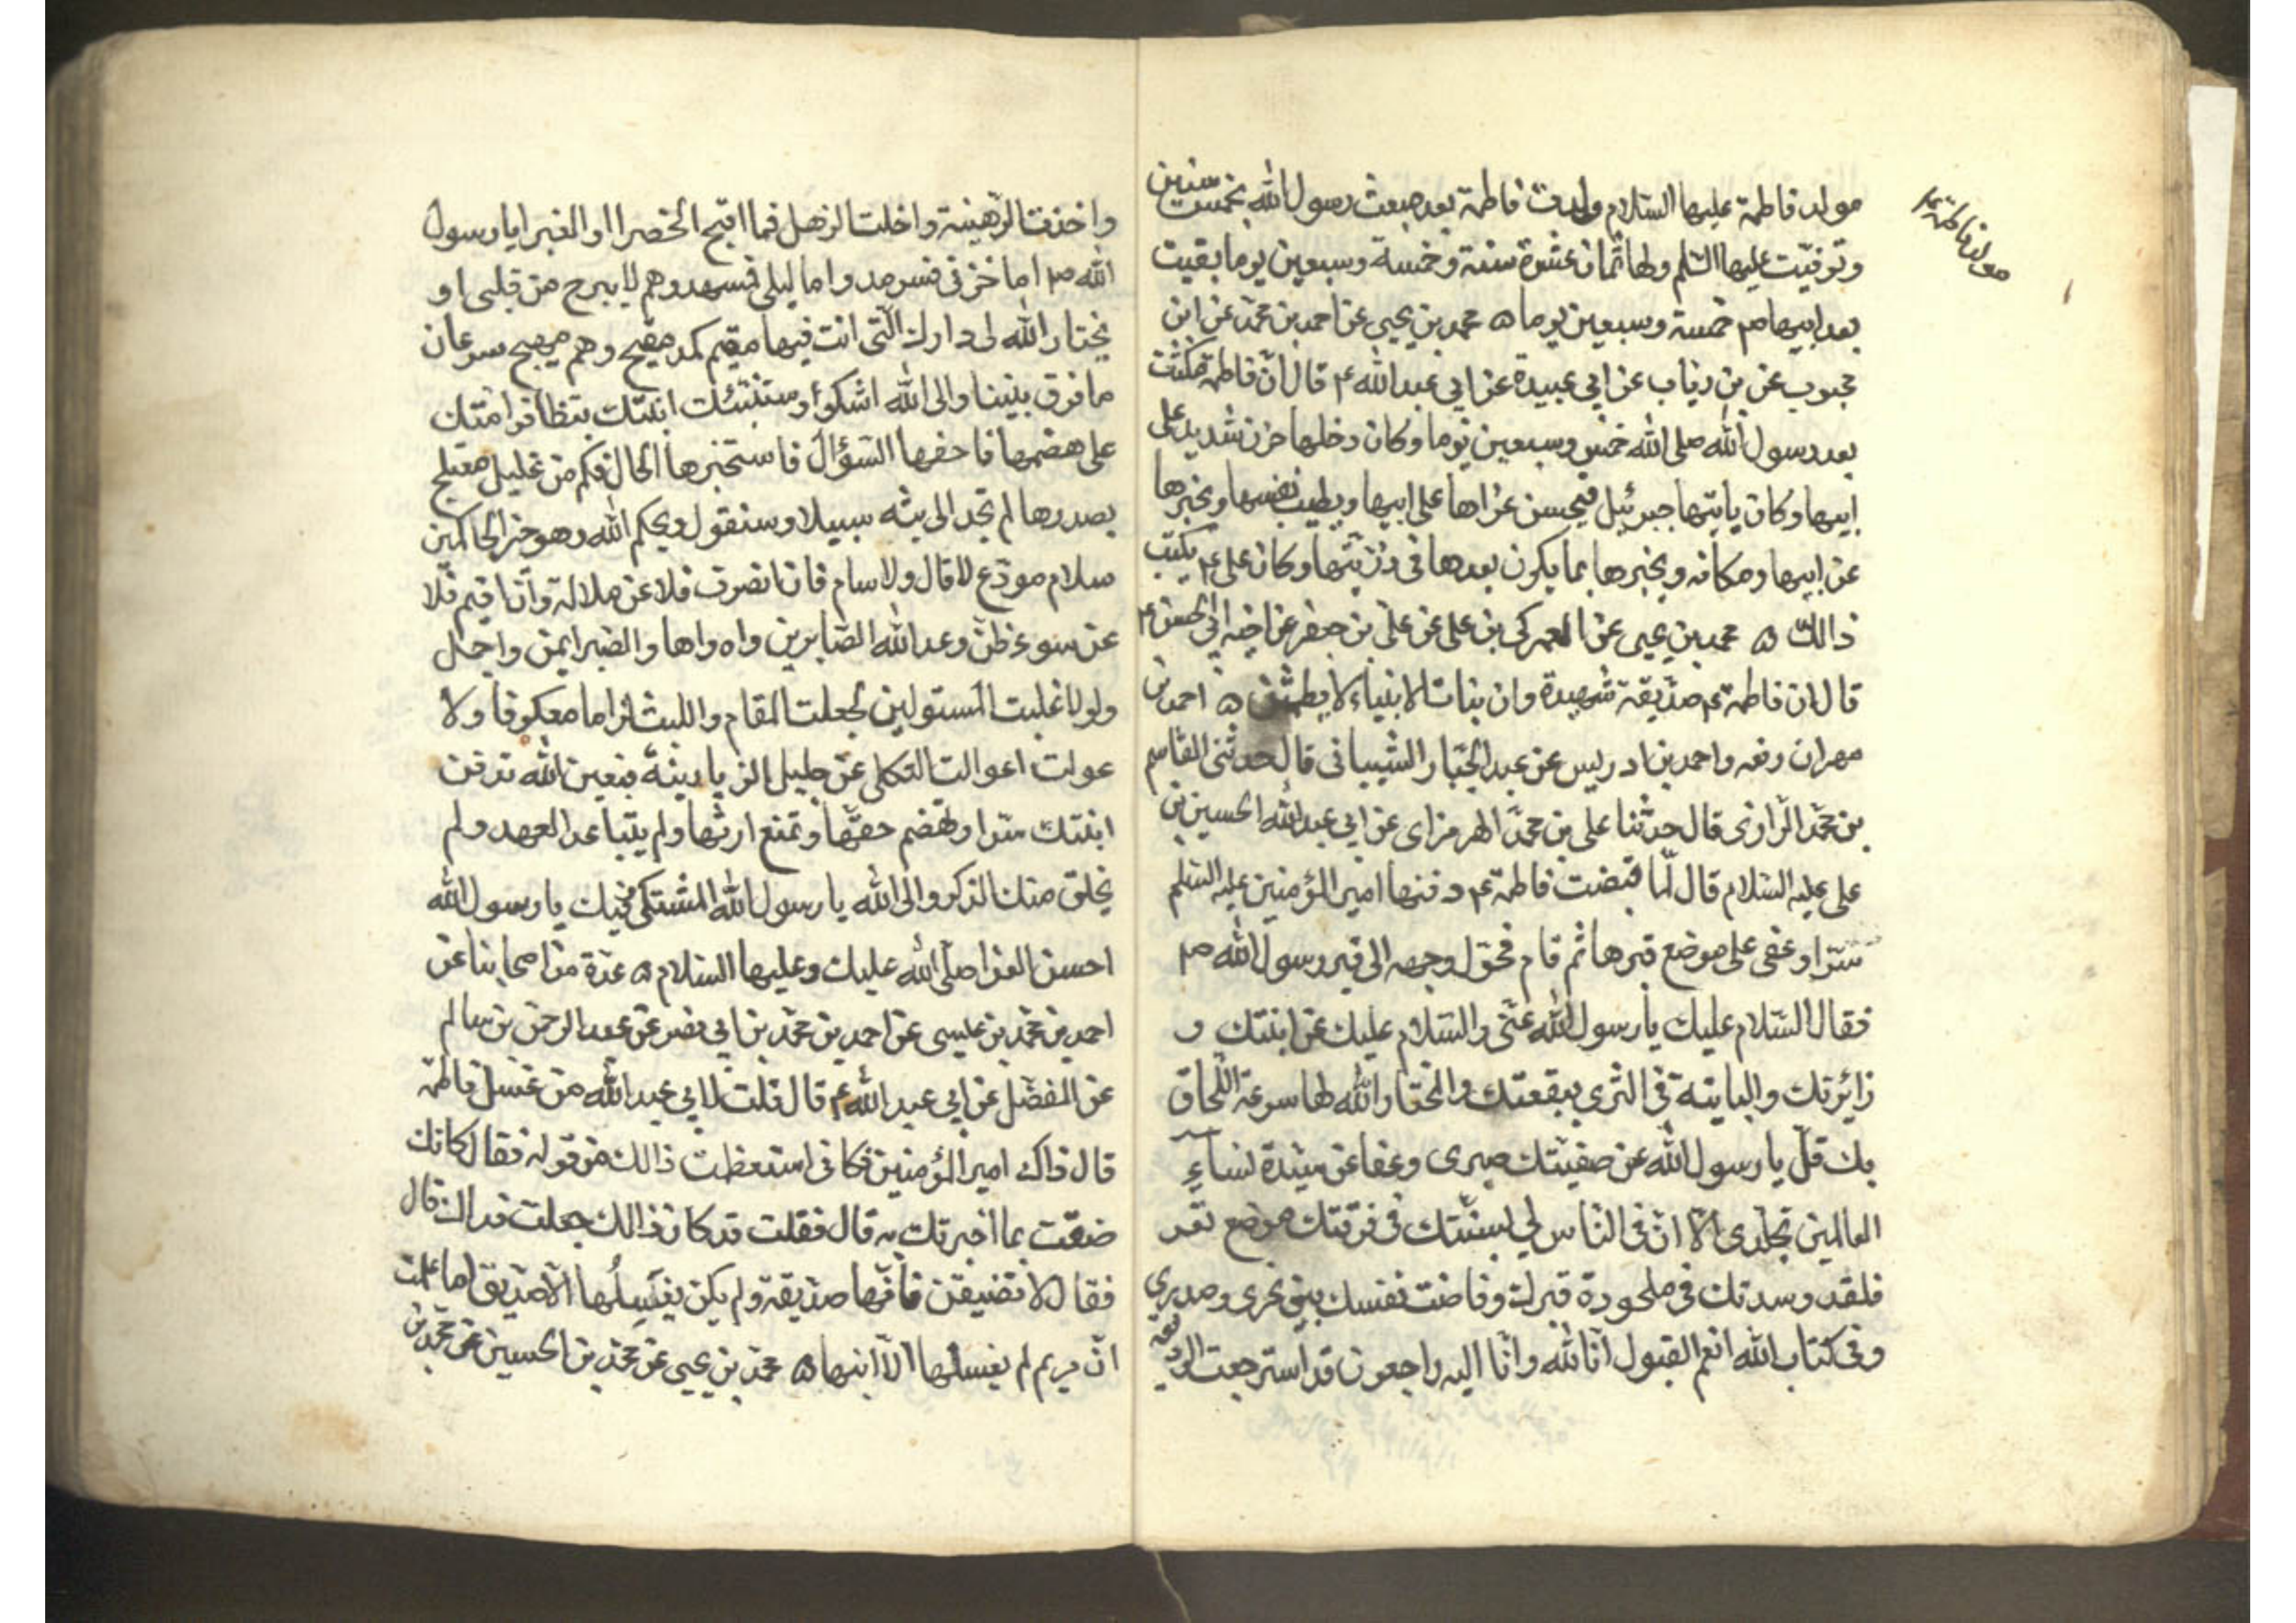 مولد فاطمة عليها السلام ولدت فاطمة بعد مبعث رسول الله بخمس سنين
وتوفيت عليها السلم ولها ثمان عشرة سنة وخمسة وسبعين يوما بقيت
بعد ابيها ص خمسة وسبعين يوما ه محمد بن يحيى عن احمد بن محمد عن ابن
محبوب عن بن رئاب عن ابي عبيدة عن ابي عبد الله ع قال ان فاطمة مكثت
بعد رسول الله صلى الله خمس وسبعين يوما وكان دخلها حزن شديد على
ابيها وكان ياتيها جبرئيل فيحسن عزاها على ابيها ويطيب نفسها ويخبرها
عن ابيها ومكانه ويخبرها بما يكون بعدها في ذريتها وكان على ع يكتب
ذالك ه محمد بن يحيى عن العمركى بن على عن على بن جعفر عن اخيه ابي الحسن ع
قال ان فاطمة ع صديقة شهيدة وان بنات الانبياء لا يطمثن ه احمد بن
مهران رفعه واحمد بن ادريس عن عبد الجبار الشيبانى قال حدثنى القاسم
بن محمد الرازى قال حدثنا على بن محمد الهرمزاى عن ابي عبد الله الحسين بن
على عليه السلام قال لما قبضت فاطمة ع دفنها امير المؤمنين عليه السلم
سترا وعفى على موضع قبرها ثم قام فحول وجهه الى قبر رسول الله ص
فقال السلام عليك يا رسول الله عنى والسلام عليك عن ابنتك و
زائرتك والبايتة في الثرى ببقعتك والمختار الله لها سرعة اللحاق
بك قل يا رسول الله عن صفيتك صبرى وعفا عن سيدة نساء
العالمين تجلدى الا ان فى الناس لي بسنتك في فرقتك موضع تعز
فلقد وسدتك فى ملحودة قبرك وفاضت نفسك بين نحرى وصدري
وفى كتاب الله انعم القبول انا لله وانا اليه راجعون قد استرجعت الوديعة
مولد فاطمة ع
واخذت الرهينة واخلت الزهل فما اقبح الخضراا والغبرا يا رسول
الله ص اما حزنى فسرمد واما ليلى فمسهد وهم لا يبرح من قلبى او
يختار الله لى دارك التى انت فيها مقيم كمد مقيح وهم مهيج سرعان
ما فرق بيننا والى الله اشكو وستنبئك ابنتك بتظافر امتك
على هضمها فاحفها السؤال فاستخبرها الحال فكم من غليل معتلج
بصدرها لم تجد الى بثه سبيلا وستقول ويحكم الله وهو خير الحاكمين
سلام مودع لا قال ولا سام فان انصرف فلا عن ملالة وان اقم فلا
عن سوء ظن وعد الله الصابرين واه واها والصبر ايمن واجمل
ولولا غلبت المستولين لجعلت المقام واللبث لزاما معكوفا ولا
عولت اعوالت الثكلى عن جليل الرزيا بينة فبعين الله تدفن
ابنتك سترا وتهضم حقها وتمنع ارثها ولم يتباعد العهد ولم
يخلق منك الذكر والى الله يا رسول الله المشتكى وفيك يا رسول الله
احسن العزا صلى الله عليك وعليها السلام ه عدة من اصحابنا عن
احمد بن محمد بن عليسى عن احمد بن محمد بن ابي نصر عن عبد الرحمن بن سالم
عن المفضل عن ابي عبد الله ع قال قلت لابي عبد الله من غسل فاطمة
قال ذاك امير المؤمنين فكانى استعظمت ذالك من قوله فقال كانك
ضقت بما اخبرتك به قال فقلت قد كان ذالك جعلت فداك قال
فقال لا تضيقن فانها صديقة ولم يكن يغسلها الا صديق اما علمت
ان مريم لم يغسلها الا ابنها ه محمد بن يحيى عن محمد بن الحسين عن محمد بن